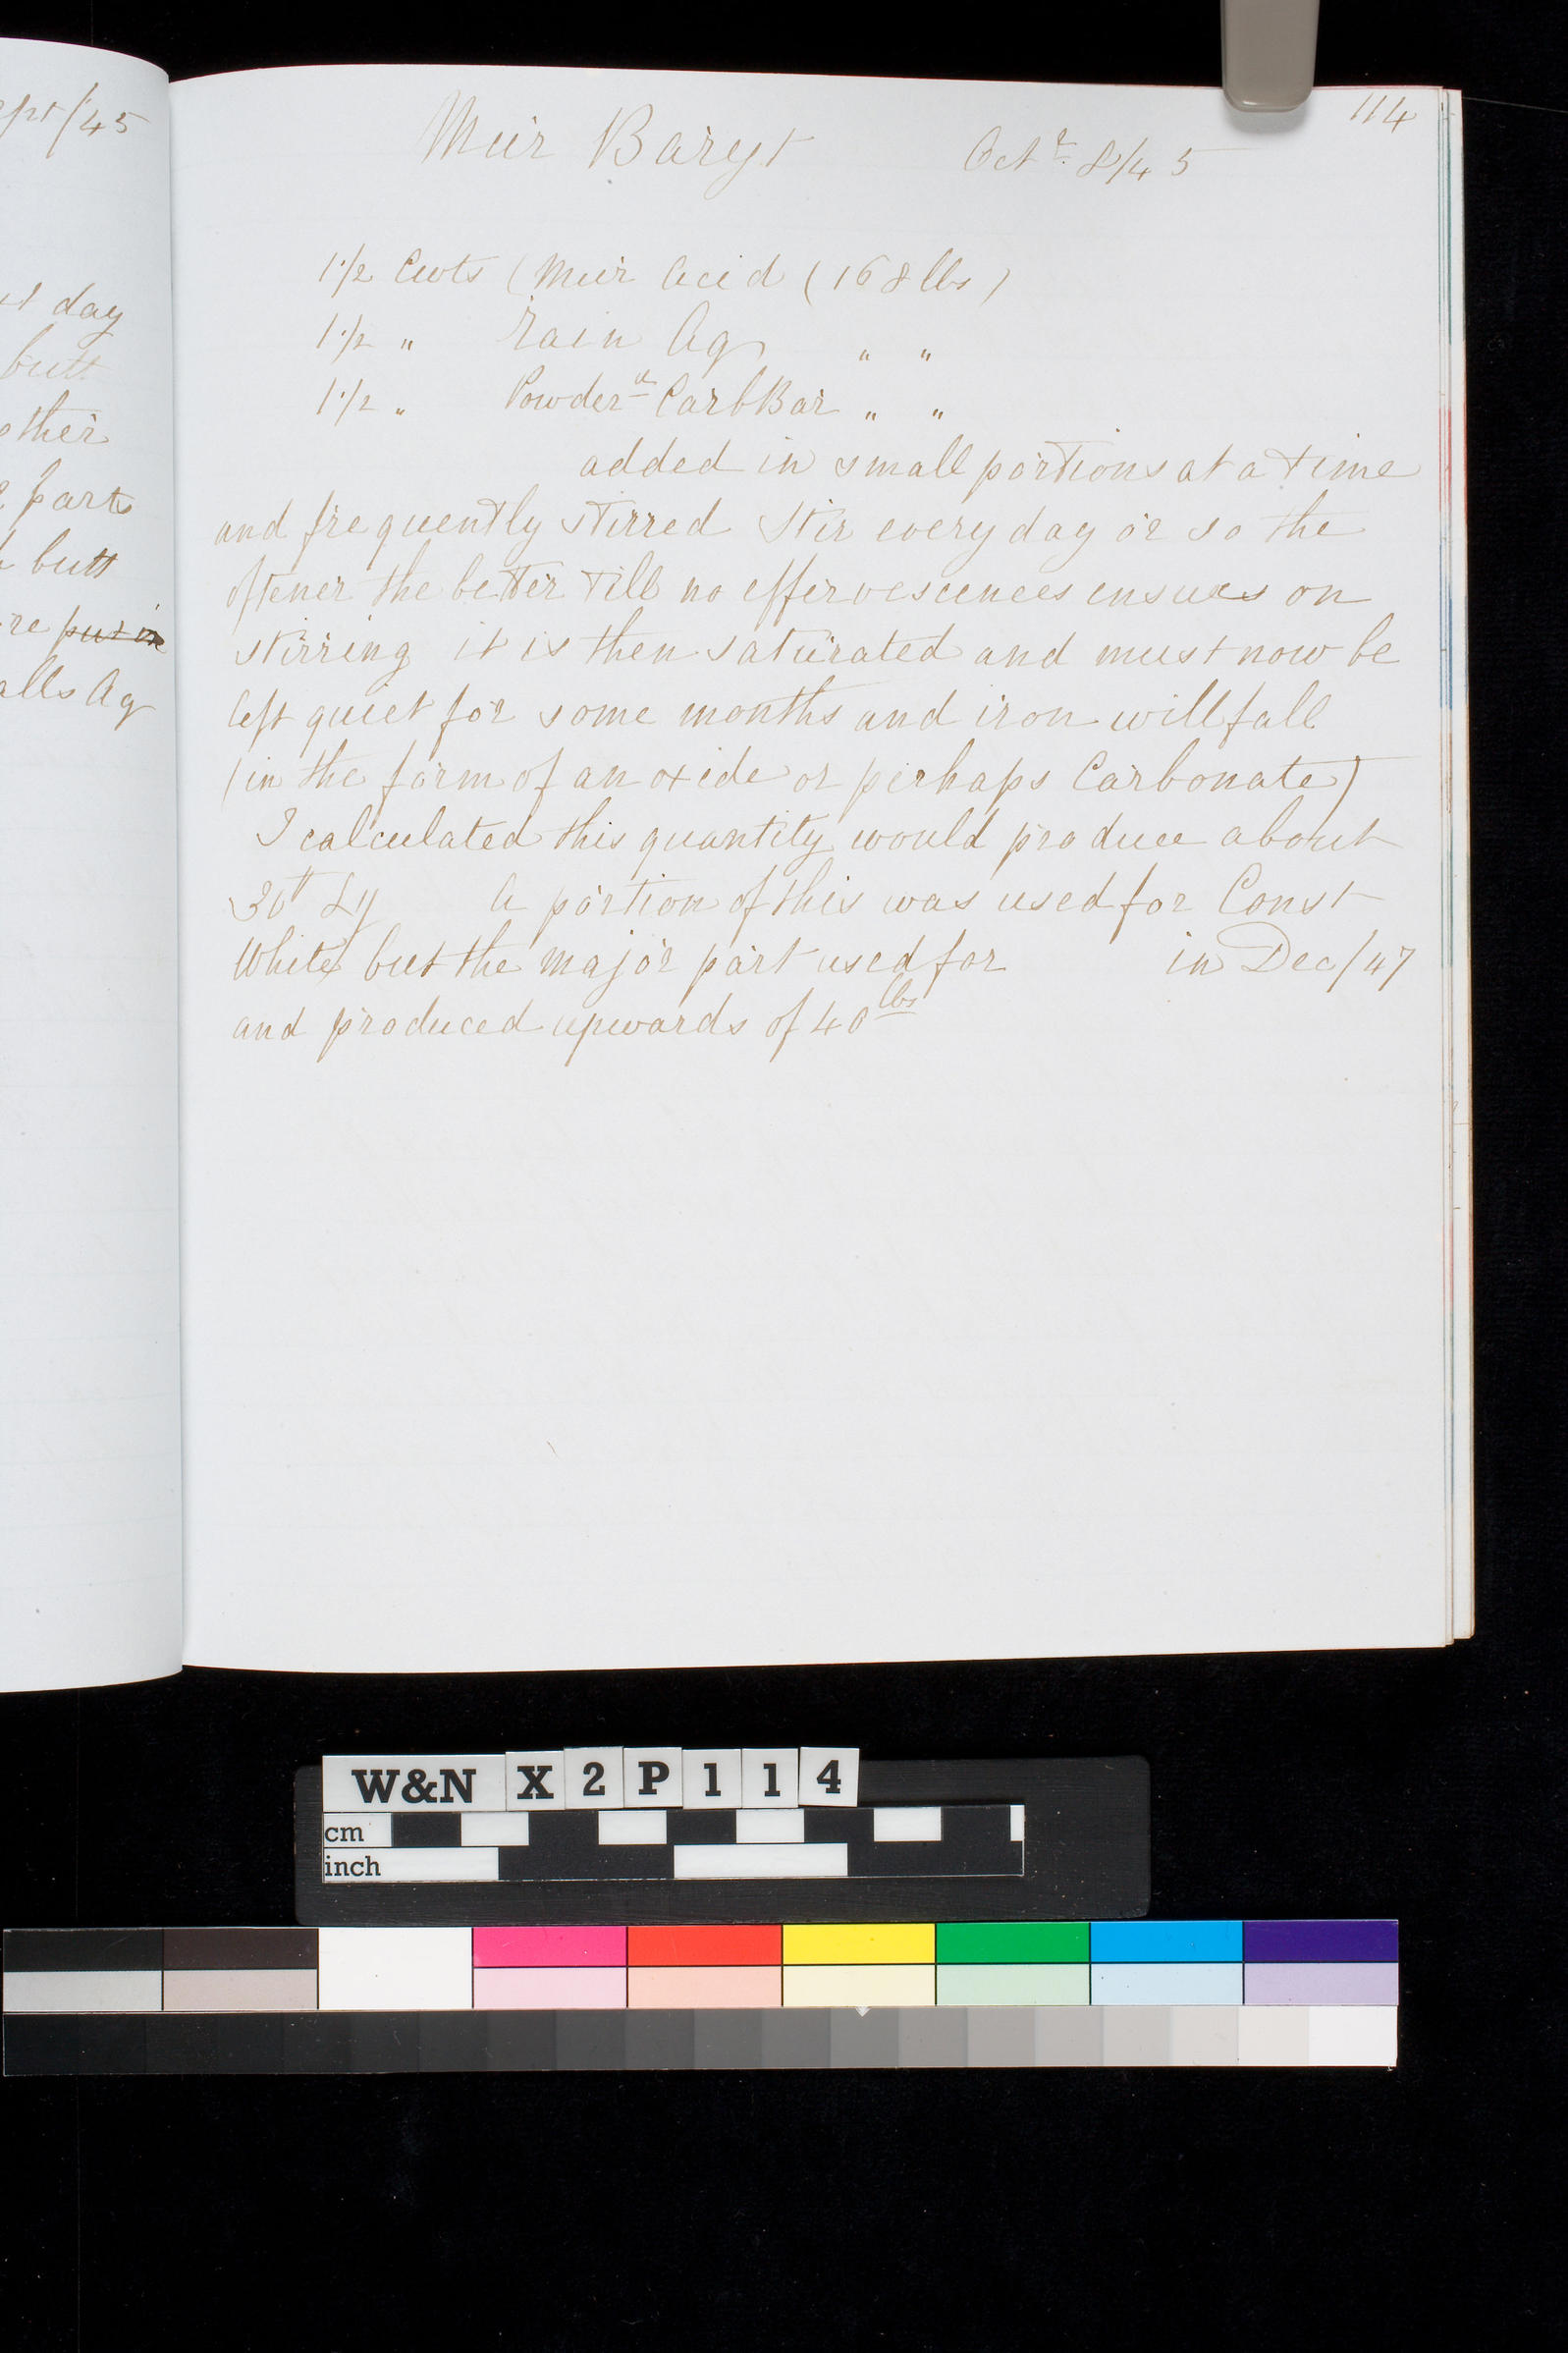 ept/45
st day
butt
other
e parts
butt
re put in
alls Aq
114
Mur Baryt Octr 8/45
1 1/2 Cwts (Mur Acid (168 lbs)
1 1/2 " Rain Aq " "
1 1/2 " Powderd Carb Bar " "
added in small portions at a time
and frequently stirred Stir every day or so the
oftener the better till no effervescences ensues on
stirring it is then saturated and must now be
left quiet for some months and iron will fall
(in the form of an oxide or perhaps Carbonate)
I calculated this quantity would produce about
30 A portion of this was used for Const
White but the major part used for in Dec/47
and produced upwards of 40 lbs
W&N X 2 P 1 1 4
cm
inch